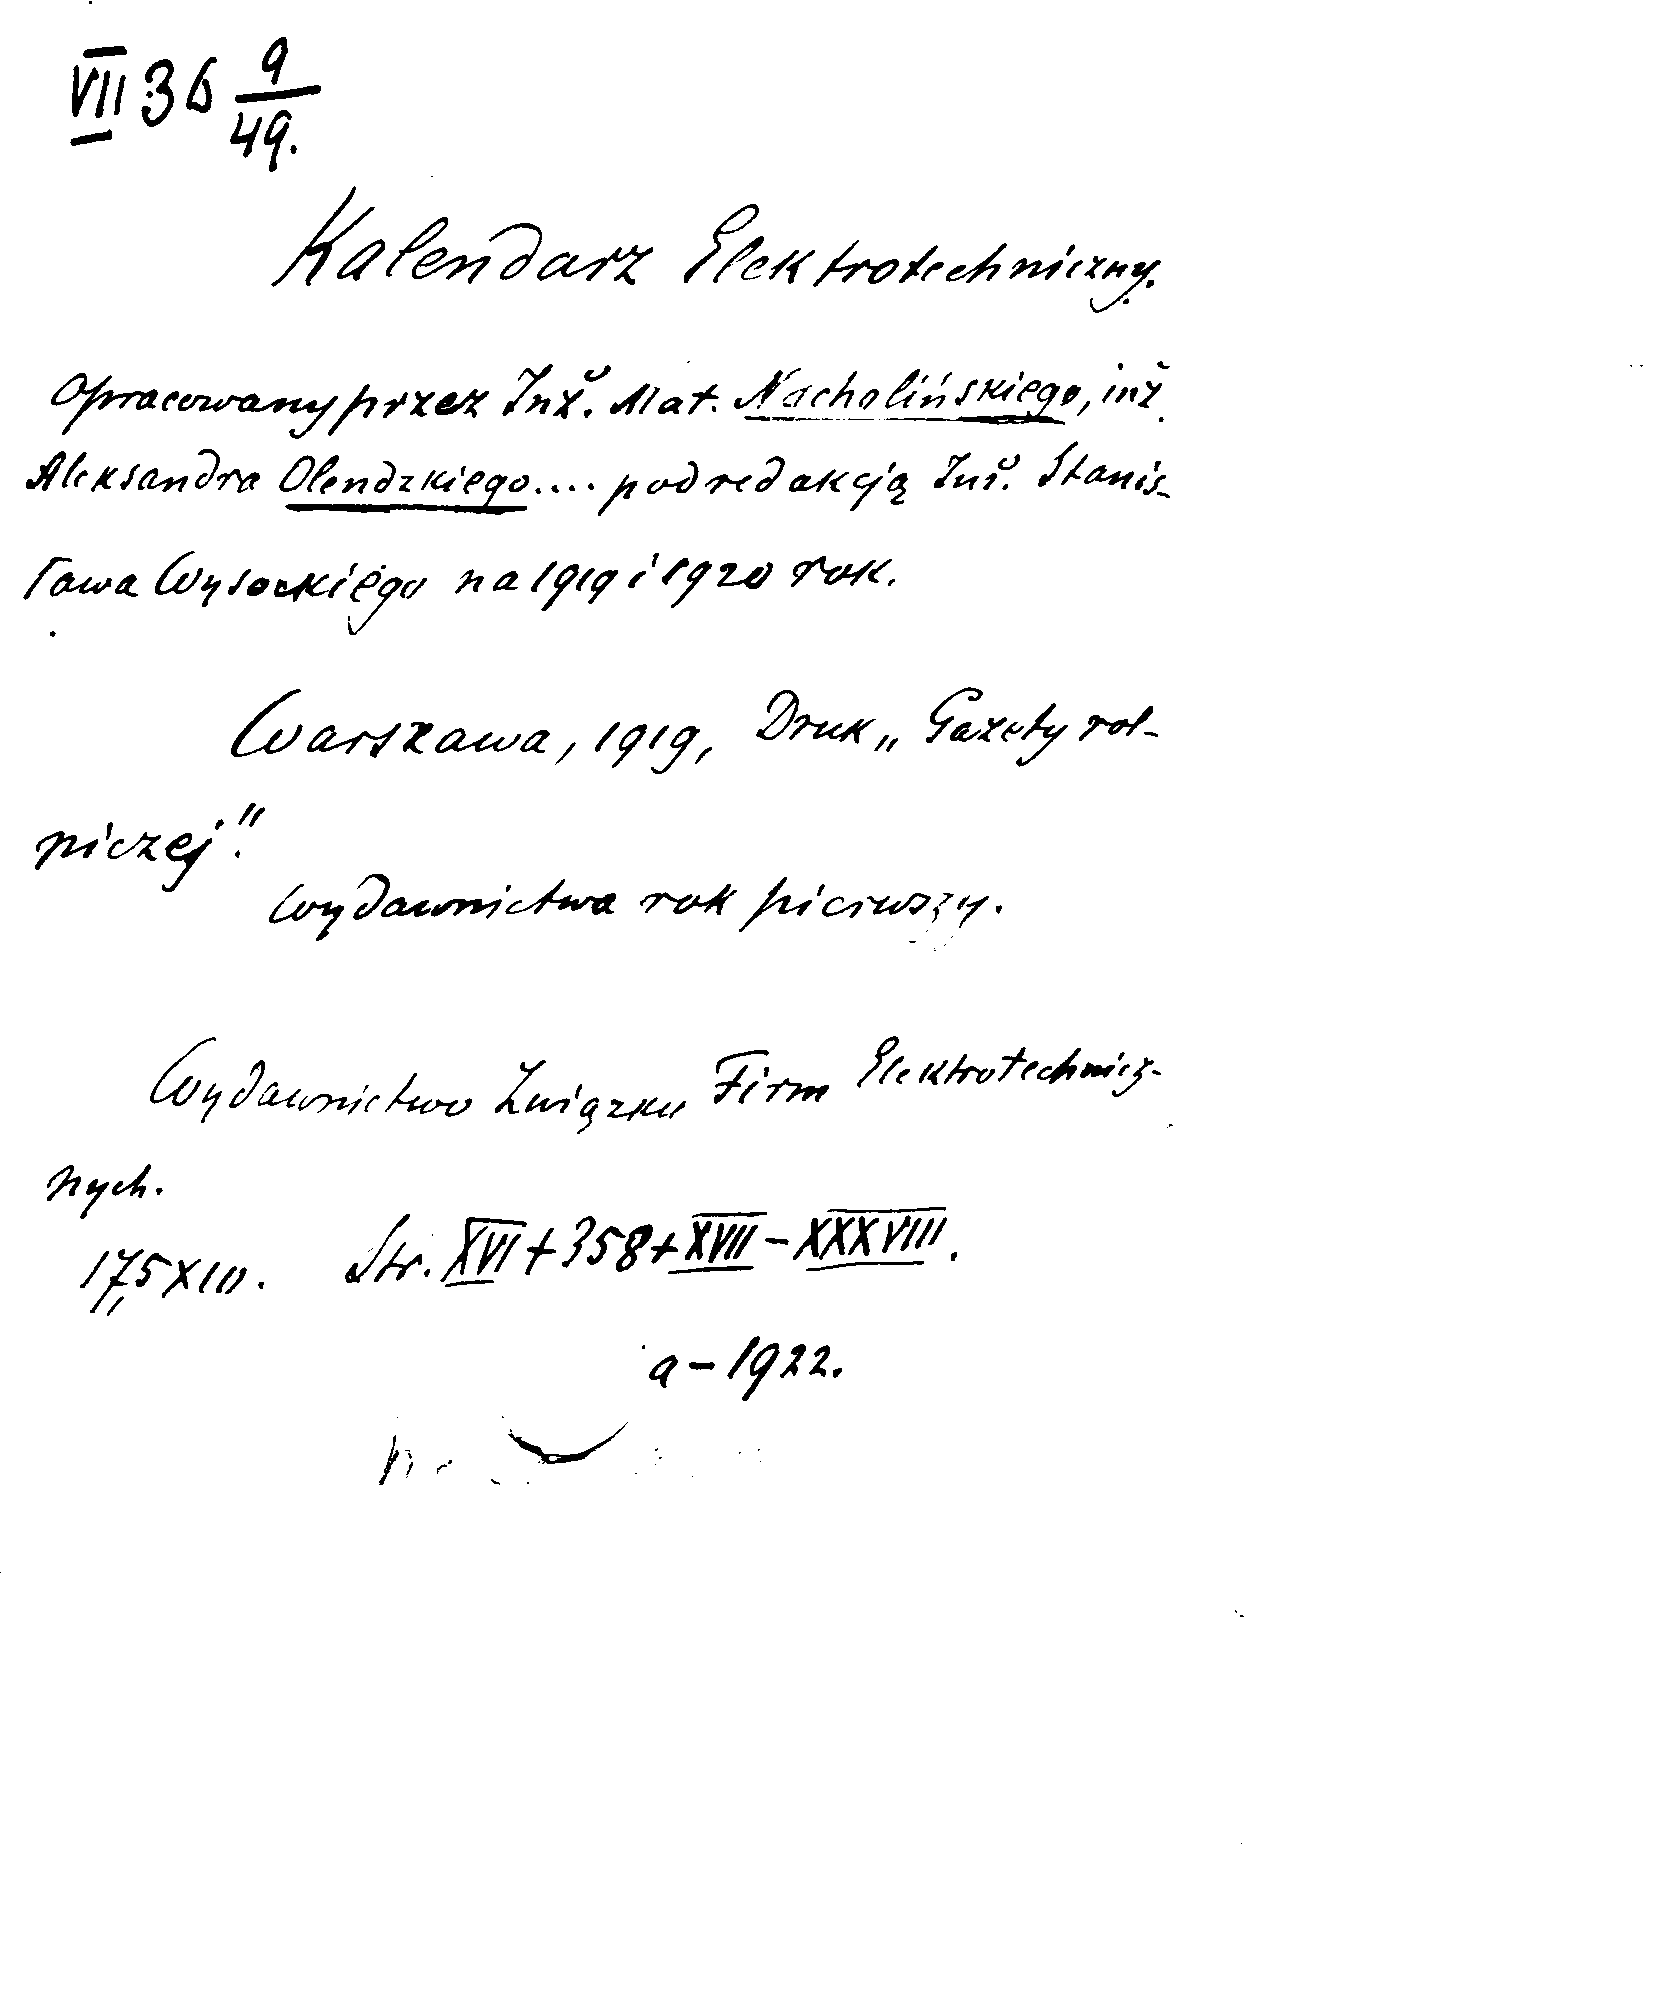 VII 36 9/49.
Kalendarz Elektrotechniczny.
Opracowany przez Inż. Mat. Nacholińskiego, inż.
Aleksandra Olendzkiego.... pod redakcją Inż. Stanis-
ława Wysockiego na 1919 i 1920 rok.
Warszawa, 1919, Druk „Gazety rol-
niczej".
Wydawnictwa rok pierwszy.
Wydawnictwo Związku Firm Elektrotechnicz-
nych.
17,5 X 10. Str. XVI + 358 + XVII - XXXVIII.
a - 1922.